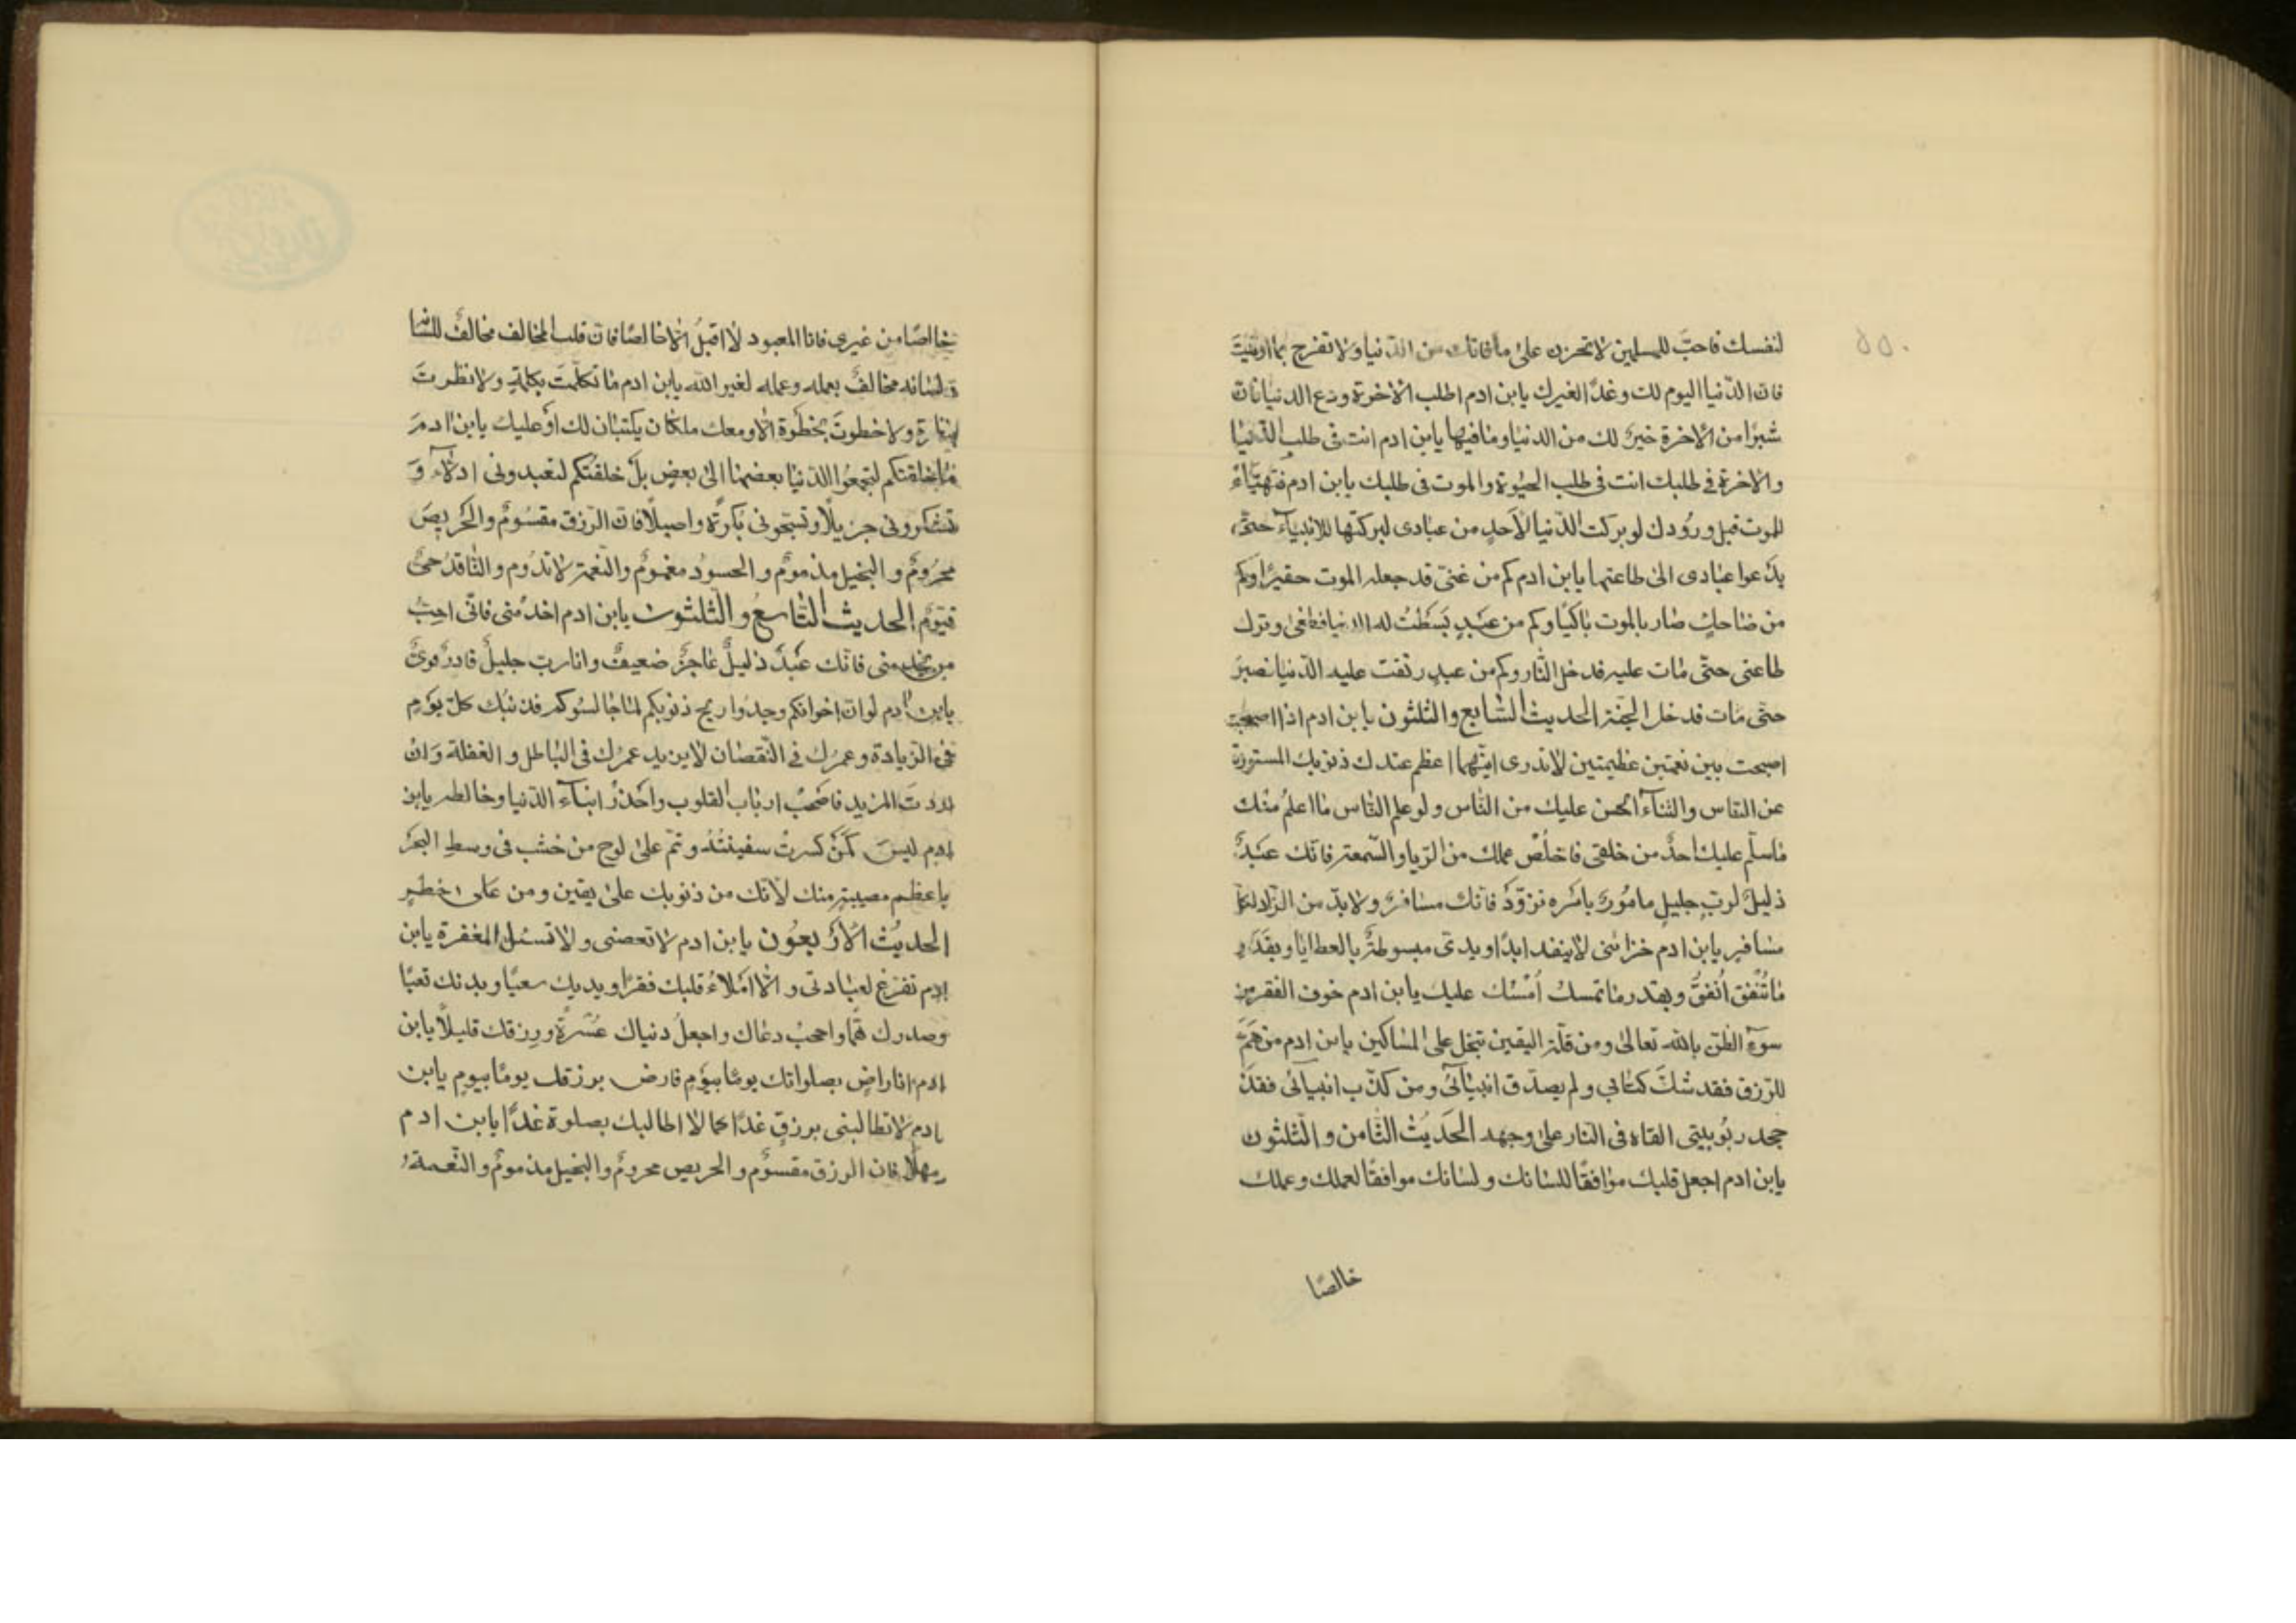 لنفسك فاحبّ للمسلمين لا تحزن على ما فاتك من الدّنيا ولا تفرح بما اوتيتَ
فان الدّنيا اليوم لك وغدًا لغيرك يابن ادم اطلب الاخرة ودع الدنيا فان
شبرًا من الاخرة خيرٌ لك من الدنيا وما فيها يابن ادم انت فى طلب الدّنيا
والاخرة فى طلبك انت فى طلب الحيوة والموت فى طلبك يابن ادم فتهيّاء
للموت قبل ورُودك لو بركت الدّنيا لاَحدٍ من عبادى لبركتها للانبياء حتّى
يدَعوا عبادى الى طاعتها يابن ادم كم من غنىّ قد جعله الموت حقيرًا وكم
من ضاحكٍ صار بالموت باكيًا وكم من عَبدٍ بَسَطْتُ له الدنيا فطغى وترك
طاعتى حتّى مات عليه فدخل النّار وكم من عبدٍ رتقت عليه الدّنيا فصبرَ
حتى مات فدخل الجنّة الحديث السّابع والثلثون يابن ادم اذا اصبحت
اصبحت بين نعمتين عظيمتين لا تدرى ايّتهما اعظم عندك ذنوبك المستورة
عن النّاس والثناء الحسن عليك من النّاس ولو علم النّاس ما اعلمُ منك
ما سلّم عليك احدٌ من خلقى فاخلُصْ عملك من الرّيا والسّمعة فانّك عبَدٌ
ذليلٌ لربٍ جليلٍ مامُورٌ بامَره تزوّدْ فانّك مسافرٌ ولا بدّ من الزّاد لكلّ
مسافرٍ يابن ادم خزائنى لا ينفد ابدًا ويدى مبسوطةٌ بالعطايا وبقَدَرِ
ما تُنْفق اُنفقُ وبقدر ما تمسك اُمْسك عليك يابن ادم خوف الفقر من
سوء الظنّ بالله تعالى ومن قلّة اليقين تبخل على المساكين يابن ادم من همَّ
للرّزق فقد شكَّ كتابى ولم يصدّق انبيائى ومن كذّب انبيائى فقدْ
جحد ربُوبيّتى القاه فى النار على وجهه الحَديثُ الثّامن والثّلثون
يابن ادم اجعل قلبك موافقًا للسانك ولسانك موافقًا لعملك وعملك
خالصًا
خالصًا من غيرى فانا المعبود لا اقبلُ الّا خالصًا فان قلب المخالف مخالفٌ للسانه
ولسانه مخالفٌ بعمله وعمله لغير الله يابن ادم ما تكلّمتَ بكلمةٍ ولا نظرتَ
بنظرةٍ ولا خطوتَ بخطَوة الّا ومعك ملكان يكتبان لك اَو عليك يابن ادمَ
ما خلقتكم لتجمعُوا الدّنيا بعضها الى بعضٍ بلْ خلقتُكم لتعبدونى اذلّاءَ وَ
تشكرونى جزيلًا وتسبّحونى بُكرَةً واصيلًا فان الرّزق مقسُومٌ والحَريصَ
محرُومٌ والبخيل مذمومٌ والحسودُ مغمومٌ والنّعمة لا تدُوم والنّاقدُ حىٌّ
قيّومٌ الحديث التّاسعُ والثّلثون يابن ادم اخدُمنى فانّى احبّ
من يخدمنى فانّك عَبْدٌ ذليلٌ عاجزٌ ضعيفٌ وانا ربٌّ جليلٌ قادرٌ قوىٌّ
يابن ادم لو انّ اخوانكم وجدُوا ريح ذنوبكم لما جالسُوكم فذنبُك كلّ يوَمٍ
فى الزّيادة وعمرُك فى النّقصان لا يزيد عمرُك فى الباطل والغفلة وَان
اردتَ المزيد فاصَحبْ ارباب القلوب واحَذرْ ابناء الدّنيا وخالطه يابن
ادم ليسَ كمَنْ كُسرتْ سفينتُهُ وتمّ على لوح من خشب فى وسط البحَر
باعظم مصيبةٍ منك لانّك من ذنوبك على يقين ومن على خطرٍ
الحديثُ الاَرْبعوُن يابن ادم لا تعصنى ولا تسئل المغفرة يابن
ادم تفرّغ لعبادتى والّا املاءُ قلبك فقرًا ويديك سعيًا وبدنك تعبًا
وصدرك همًّا واحجبُ دعاك واجعلُ دنياك عُسْرةً ورزقك قليلاً يابن
ادم انا راضٍ بصلواتك يومًا بيوَمٍ فارض برزقك يومًا بيومٍ يابن
ادم لا تطالبنى برزقِ غدًا كما لا اطالبك بصلوة غدًا يابن ادم
مهلًا فان الرزق مقسوٌم والحريص محرومٌ والبخيل مذمومٌ والنّعمة